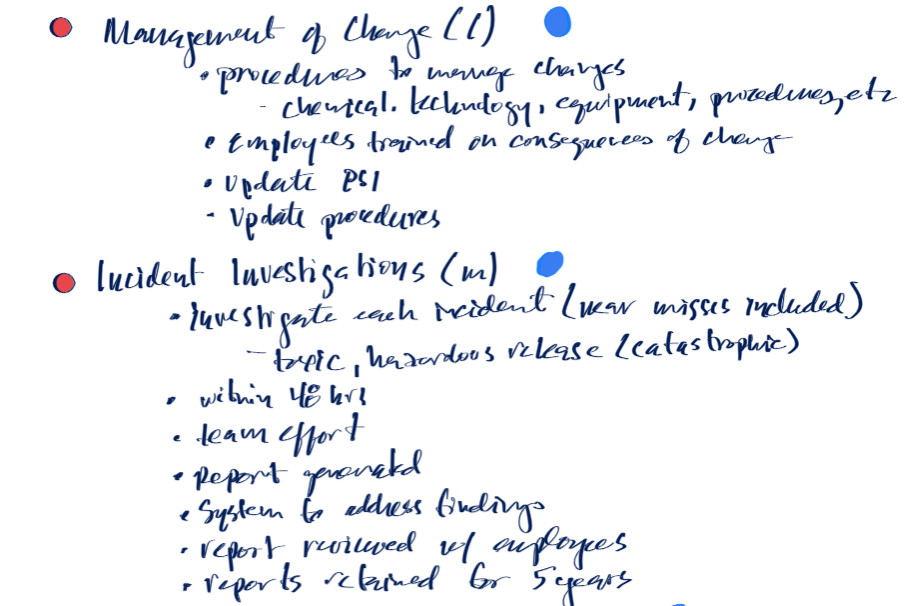 Management of Change (l)
• procedures to manage changes
- chemical, technology, equipment, procedures, etc
• Employees trained on consequences of change
• Update PSI
- Update procedures
Incident Investigations (m)
• Investigate each incident (near misses included)
- toxic, hazardous release (catastrophic)
• within 48 hrs
• team effort
• Report generated
• System to address findings
• report reviewed w/ employees
• reports retained for 5 years